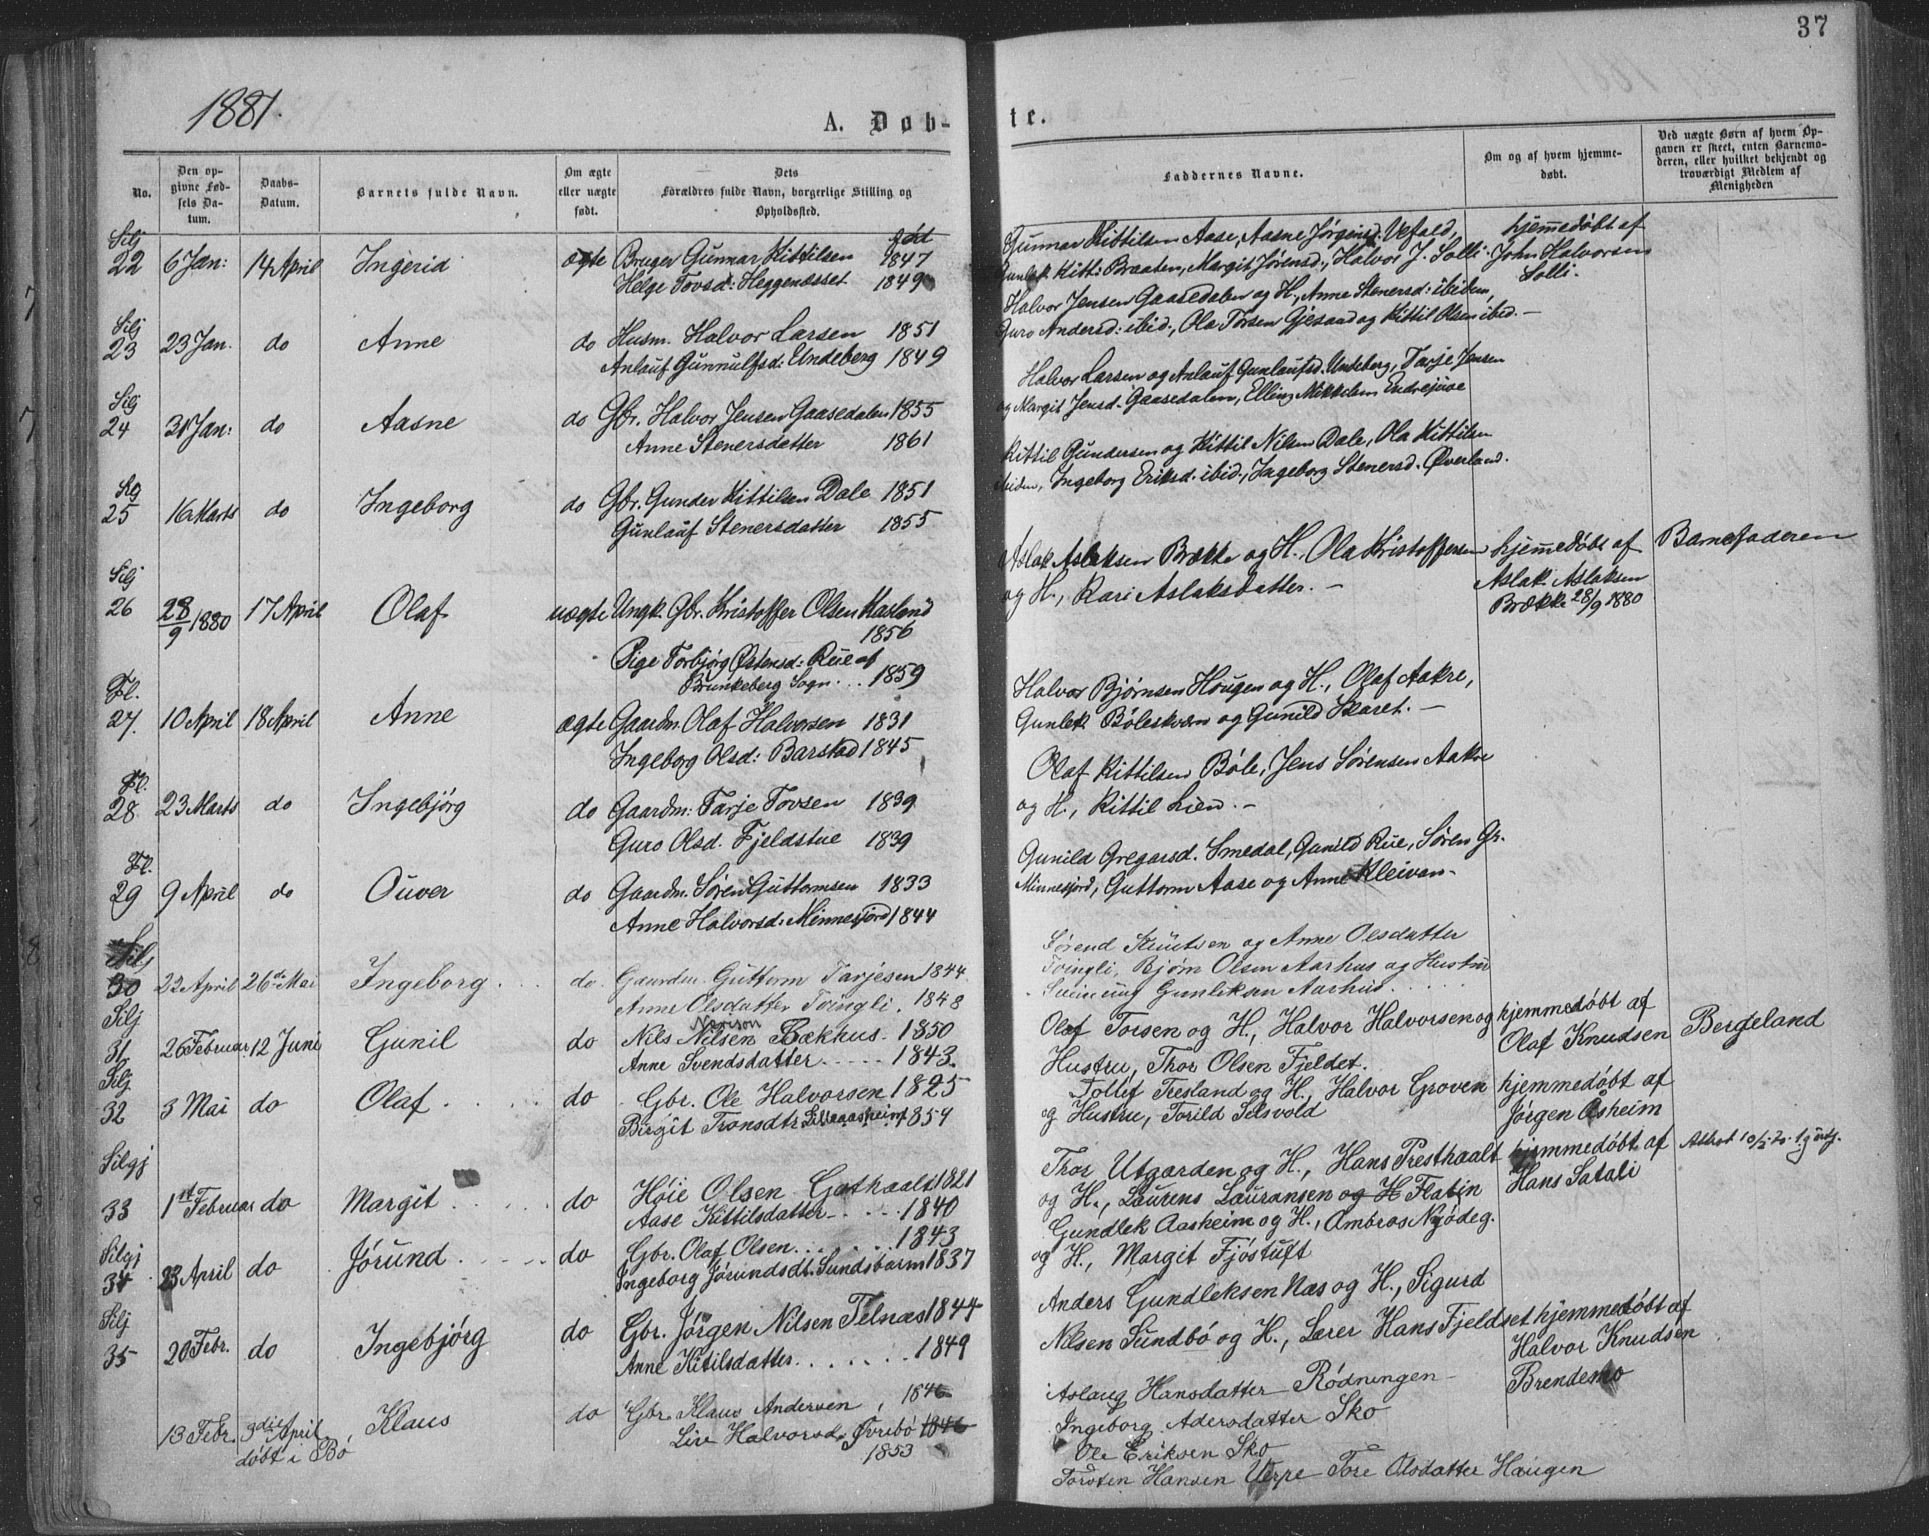 37
1881.
A. Døb-
te.
No.
Den op-
givne Fød-
sels Da-
tum.
Daabs-
Datum.
Barnets fulde Navn.
Om ægte
eller uægte
født.
Dets
Forældres fulde Navn, borgerlige Stilling og
Opholdssted.
Faddernes Navne.
Om og af hvem hjemme-
døbt.
Ved uægte Børn af hvem Op-
gaven er skeet, enten Barnemo-
deren, eller hvilket bekjendt og
troværdigt Medlem af
Menigheden
Silj
22 6 Jan: 14 April Ingerid ægte Bruger Gunnar Kittilsen født 1847
Helge Tovsd: Heggenæsset 1849
Gunnar Kittilsen Aase, Aasne Jørgensd: Vefald,
Gunlek Kitti: Braaten, Margit Jørensd., Halvor J. Solli.
hjemmedøbt af
John Halvorsen
Solli.
Silj
23 23 Jan. do Anne do Husm. Halvor Larsen 1851
Anlauf Gunnulfsd: Undeberg 1849
Halvor Jensen Gaasedalen og H., Anne Stenersd: ibidem,
Guro Andersd: ibid., Ola Torsen Gjesaad og Kittil Olsen ibid. –
Silj
24 31 Jan: do Aasne do Gbr. Halvor Jensen Gaasedalen 1855
Anne Stenersdatter 1861
Halvor Larsen og Anlauf Gunlaufsd. Undeberg, Tarje Jensen
og Margit Jensd. Gaasedalen, Elling Mikkelsen Endrejuve
25 16 Marts do Ingeborg do Gbr. Gunder Kittilsen Dale 1851
Gunlauf Stenersdatter 1855
Kittil Gundersen og Kittil Nilsen Dale, Ola Kittilsen
ibidem, Ingeborg Eriksd. ibid., Ingeborg Stenersd. Øverland.
Silj
26 28/9 1880 17 April Olaf uægte Ungk. Gbr. Kristoffer Olsen Hasland
1856
Pige Torbjørg Østensd: Rue af
Brunkeberg Sogn... 1859
Aslak Aslaksen Brække og H., Ola Kristoffersen
og H., Kari Aslaksdatter. –
hjemmedøbt af
Aslak Aslaksen
Brække 28/9 1880
Barnefaderen
Fl.
27. 10 April 18 April Anne ægte Gaardm. Olaf Halvorsen 1831
Ingeborg Olsd: Barstad 1845
Halvor Bjørnsen Haugen og H., Olaf Aakre,
Gunlek Böleskværn og Gunild Skaret. –
Fl.
28. 23 Marts do Ingebjörg do Gaardm: Tarje Tovsen 1839
Guro Olsd. Fjeldstue 1839
Olaf Kittilsen Böle, Jens Sørensen Aakre
og H., Kittil Lien. –
Fl.
29 9 April do Ouver do Gaardm. Søren Guttormsen 1833
Anne Halvorsd: Minnesjord 1844
Gunild Gregarsd. Smedal, Gunild Rue, Søren Gr.
Minnesjord, Guttorm Aase og Anne Kleivan –
Silj
30 22 April 26de Mai Ingeborg do Gaardm. Guttorm Tarjesen 1844
Anne Olsdatter Tvingli. 1848
Sørend Knutsen og Anne Olsdatter
Tvingli, Bjørn Olsen Aarhus og Hustru
Gunleksen Aarhus.
Silj
31 26 Februar 12 Juni Gunil do Nils Nilsen Bækhus. 1850
Anne Svendsdatter 1843.
Olaf Torsen og H., Halvor Halvorsen og
Hustru, Thor Olsen Fjeldet.
hjemmedøbt af
Olaf Knudsen Bergeland
Silj
32 3 Mai do Olaf do Gbr. Ole Halvorsen 1825
Birgit Tronsdtr Lilleaasheim 1854
Tollif Tresland og H., Halvor Groven
og Hustru, Torild Selsvold
hjemmedøbt af
Jörgen Åsheim
Silgj
33 1st Februar do Margit do Høie Olsen Gothaald 1821
Aase Kittilsdatter 1840
Thor Utgarden og H., Hans Presthaalt
og H., Laurens Lauransen og H Flatin
hjemmedøbt af
Hans Satali
Silgj
34 23 April do Jörund do Gbr. Olaf Olsen 1843
Ingeborg Jörundsdt. Sundsbarm 1837
Gundlek Aasheim og H., Ambros Nyödeg.
og H., Margit Fjöstuft
Silj
35 20 Febr. do Ingebjörg do Gbr. Jörgen Nilsen Telnæs 1844
Anne Kitilsdatter 1849
Anders Gundleksen Næs og H., Sigurd
Nilsen Sundbö og H., Lærer Hans Fjeldset
hjemmedöbt af
Halvor Knudsen
Brendemo
13 Febr. 3die April Klaus do Gbr. Klaus Andersen, 1846
døbt i Bö
Live Halvorsd. 1846
1853
Aslaug Hansdatter Rödningen
Ingeborg Adersdatter Sko
Ole Eriksen Sko
Torsten Hansen Verpe Tore Olsdatter Haugen